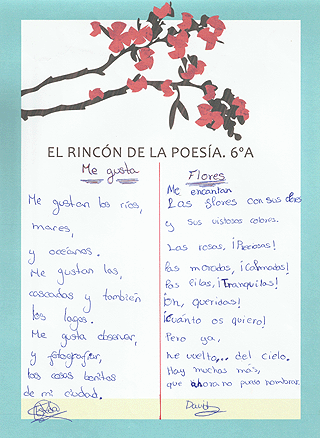 EL RINCÓN DE LA POESÍA. 6ºA
Me gusta
Me gustan los ríos,
mares,
y océanos.
Me gustan las,
cascadas y también
los lagos.
Me gusta observar,
y fotografiar,
las cosas bonitas
de mi ciudad.
Flores
Me encantan
Las flores con sus olores
y sus vistosos colores.
Las rosas, ¡Preciosas!
Las moradas, ¡Calmadas!
Las lilas, ¡Tranquilas!
¡Oh, queridas!
¡Cuánto os quiero!
Pero ya,
he vuelto... del cielo.
Hay muchas más,
que ahora no puedo nombrar.
David